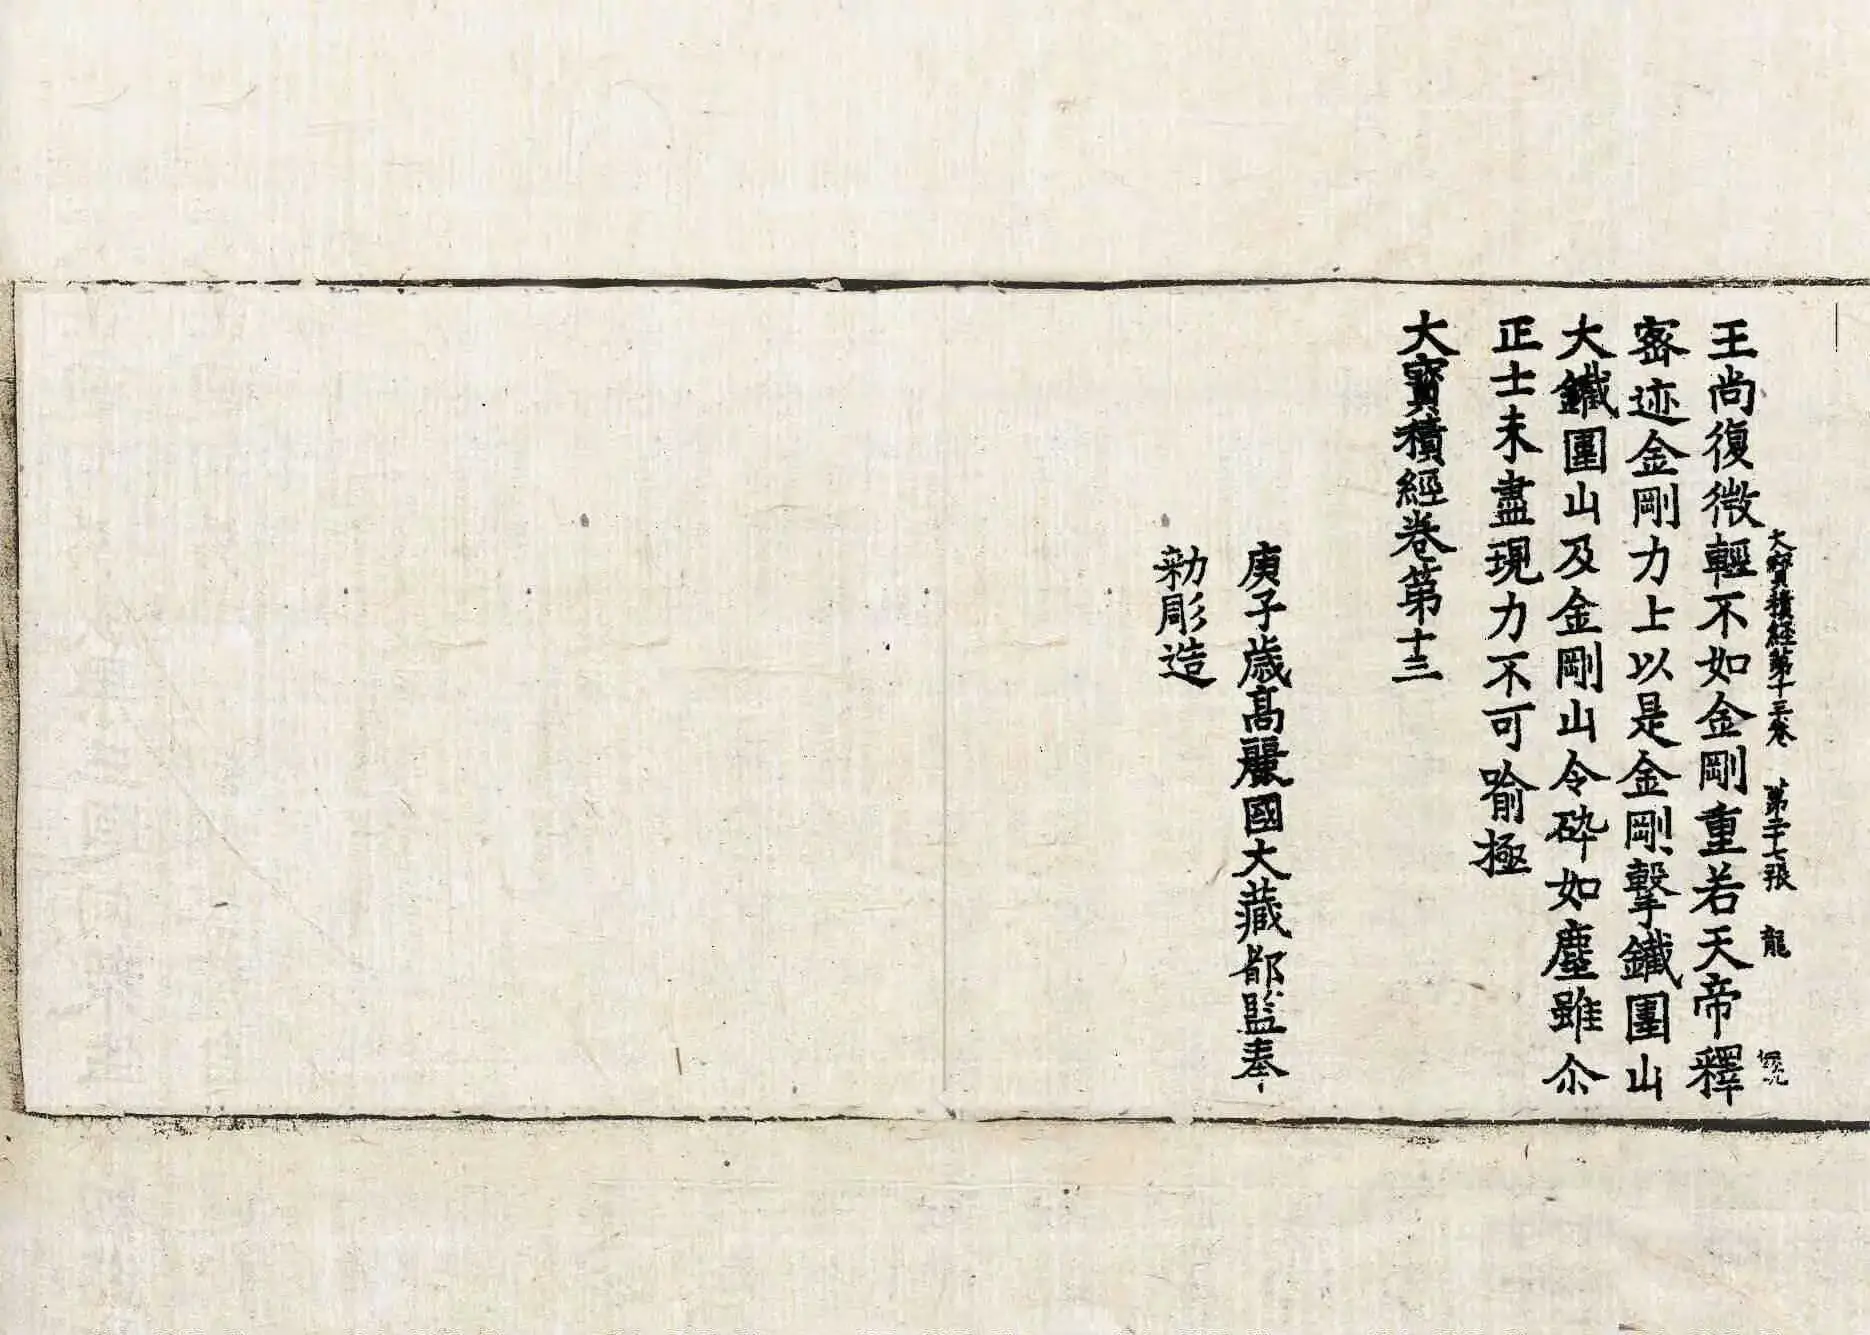 大寶積經第十三卷 第二十七張 龍
王尚復微輕不如金剛重若天帝釋
密迹金剛力上以是金剛擊鐵圍山
大鐵圍山及金剛山令碎如塵雖尒
正士未盡現力不可喻極
大寶積經卷第十三
庚子歲高麗國大藏都監奉
勑彫造